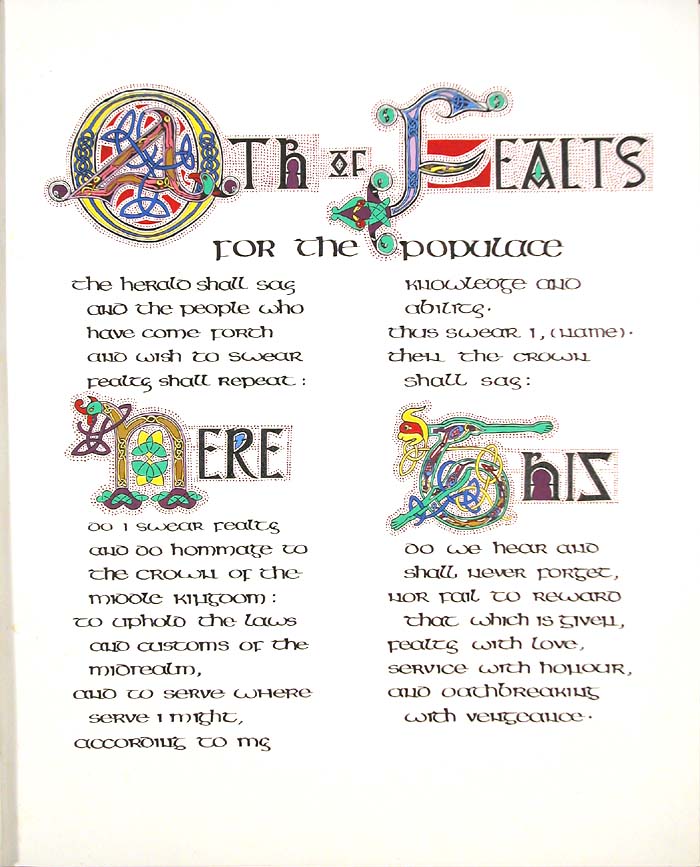 OATH OF FEALTY
for the populace
the herald shall say
and the people who
have come forth
and wish to swear
fealty shall repeat:
HERE
do I swear fealty
and do hommage to
the crown of the
middle kingdom:
to uphold the laws
and customs of the
midrealm,
and to serve where
serve I might,
according to my
knowledge and
ability.
thus swear I, (name).
then the crown
shall say:
THIS
do we hear and
shall never forget,
nor fail to reward
that which is given,
fealty with love,
service with honour,
and oathbreaking
with vengeance.